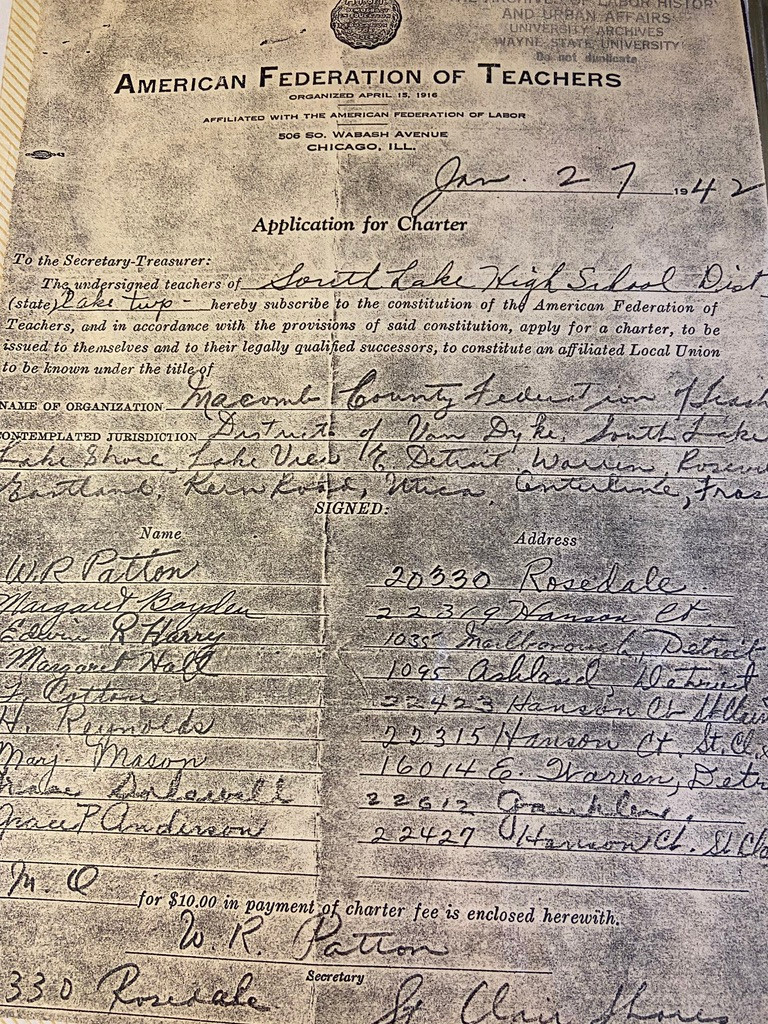 THE ARCHIVES OF LABOR HISTORY
AND URBAN AFFAIRS
UNIVERSITY ARCHIVES
WAYNE STATE UNIVERSITY
Do not duplicate
AMERICAN FEDERATION OF TEACHERS
ORGANIZED APRIL 15, 1916
AFFILIATED WITH THE AMERICAN FEDERATION OF LABOR
506 SO. WABASH AVENUE
CHICAGO, ILL.
Jan. 27 1942
Application for Charter
To the Secretary-Treasurer:
The undersigned teachers of South Lake High School Dist
(state) Lake twp - hereby subscribe to the constitution of the American Federation of
Teachers, and in accordance with the provisions of said constitution, apply for a charter, to be
issued to themselves and to their legally qualified successors, to constitute an affiliated Local Union
to be known under the title of
NAME OF ORGANIZATION Macomb County Federation of Teach
CONTEMPLATED JURISDICTION District of Van Dyke, South Lake
Lake Shore, Lake View E Detroit Warren, Rosevi
Eastland, Kern Road, Utica, Centerline, Fras
SIGNED:
Name Address
W. R Patton 20330 Rosedale
Margaret Boyden 22319 Hanson Ct.
Edwin R Harry 1035 Marlborough, Detroit
Margaret Hall 1095 Ashland, Detroit
Cotton 22423 Hanson Ct St Clair
H. Reynolds 22315 Hanson Ct, St. Cl.
Marj Mason 16014 E. Warren, Detr
22612
Grace P. Anderson 22427 Hanson Ct. St Cla
M. O for $10.00 in payment of charter fee is enclosed herewith.
W. R. Patton
Secretary
330 Rosedale St Clair Shores